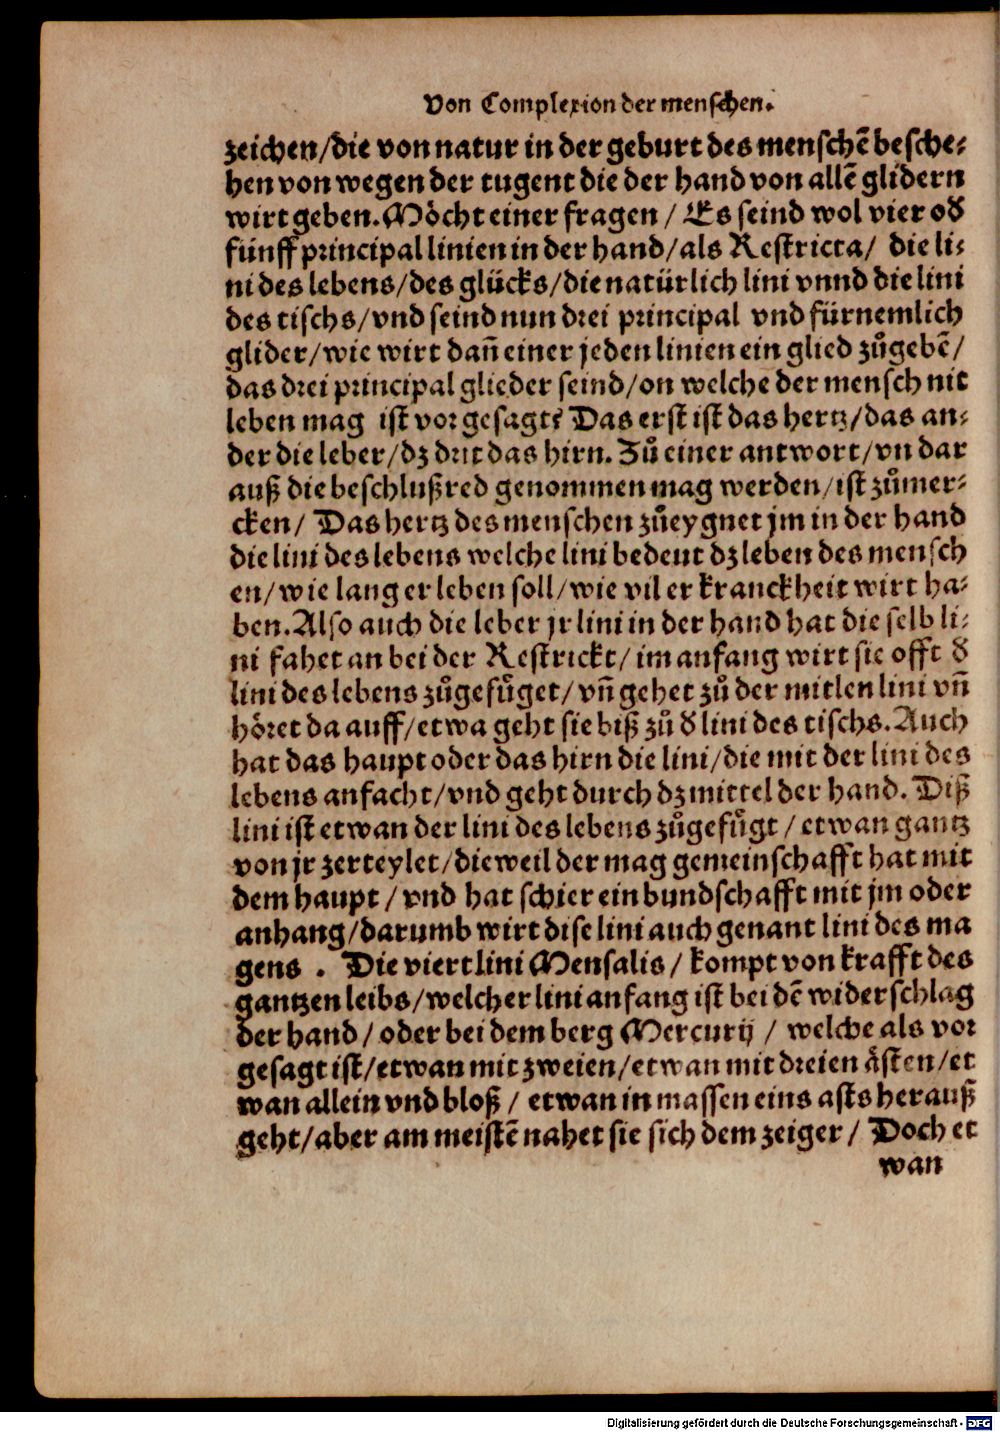 Von Complexion der menschen.
zeichen/die von natur in der geburt des menschẽ besche⸗
hen von wegen der tugent die der hand von allẽ glidern
wirt geben. Möcht einer fragen / Es seind wol vier oď
fünff principal linien in der hand/als Restricta/ die li⸗
ni des lebens/des glücks/die natürlich lini vnnd die lini
des tischs/vnd seind nun drei principal vnd fürnemlich
glider/wie wirt dañ einer jeden linien ein glied zůgebẽ/
das drei principal glieder seind/on welche der mensch nit
leben mag ist vor gesagt? Das erst ist das hertz/das an⸗
der die leber/dz drit das hirn. Zů einer antwort/vn dar
auß die beschlußred genommen mag werden/ist zůmer⸗
cken/ Das hertz des menschen zůeygnet jm in der hand
die lini des lebens welche lini bedeut dz leben des mensch
en/wie lang er leben soll/wie vil er kranckheit wirt ha⸗
ben. Also auch die leber jr lini in der hand hat die selb li⸗
ni fahet an bei der Restrickt/im anfang wirt sie offt ď
lini des lebens zůgefůget/vñ gehet zů der mitlen lini vñ
höret da auff/etwa geht sie biß zů ď lini des tischs. Auch
hat das haupt oder das hirn die lini/die mit der lini des
lebens anfacht/vnd geht durch dz mittel der hand. Diß
lini ist etwan der lini des lebens zůgefůgt / etwan gantz
von jr zerteylet/dieweil der mag gemeinschafft hat mit
dem haupt / vnd hat schier ein bundschafft mit jm oder
anhang/darumb wirt dise lini auch genant lini des ma
gens . Die viert lini Mensalis / kompt von krafft des
gantzen leibs/welcher lini anfang ist bei dẽ widerschlag
der hand / oder bei dem berg Mercurij / welche als vor
gesagt ist/etwan mit zweien/etwan mit dreien ästen/et
wan allein vnd bloß / etwan in massen eins asts herauß
geht/aber am meistẽ nahet sie sich dem zeiger/ Doch et
wan
Digitalisierung gefördert durch die Deutsche Forschungsgemeinschaft - DFG